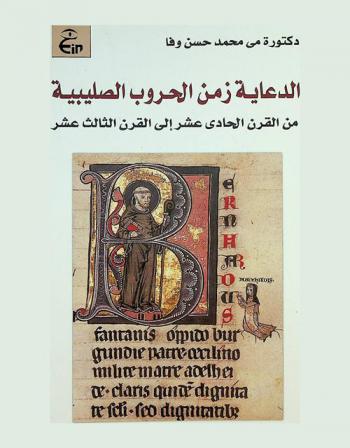 Ein
دكتورة مى محمد حسن وفا
الدعاية زمن الحروب الصليبية
من القرن الحادى عشر إلى القرن الثالث عشر
B
E
R
N
H
A
R
D
U S
fantanis opido bur
gundie patre cecilino
milite matre adelhei
de. claris quidē dignita
te scli. sed dignitatibz